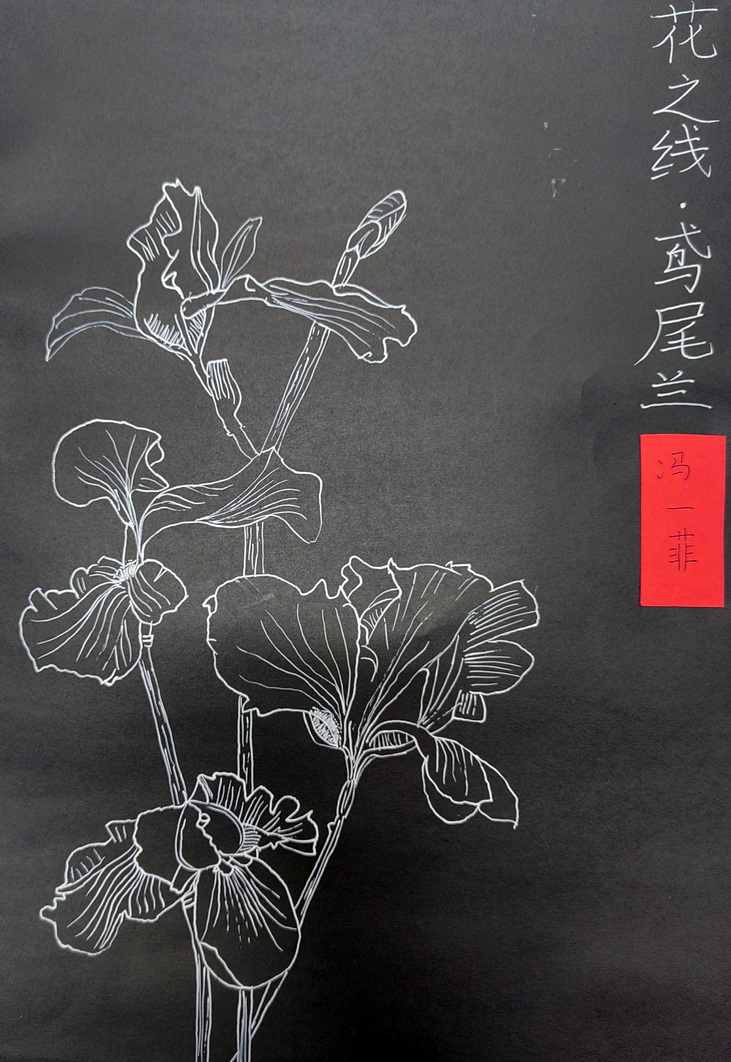 花之线·鸢尾兰
冯一菲